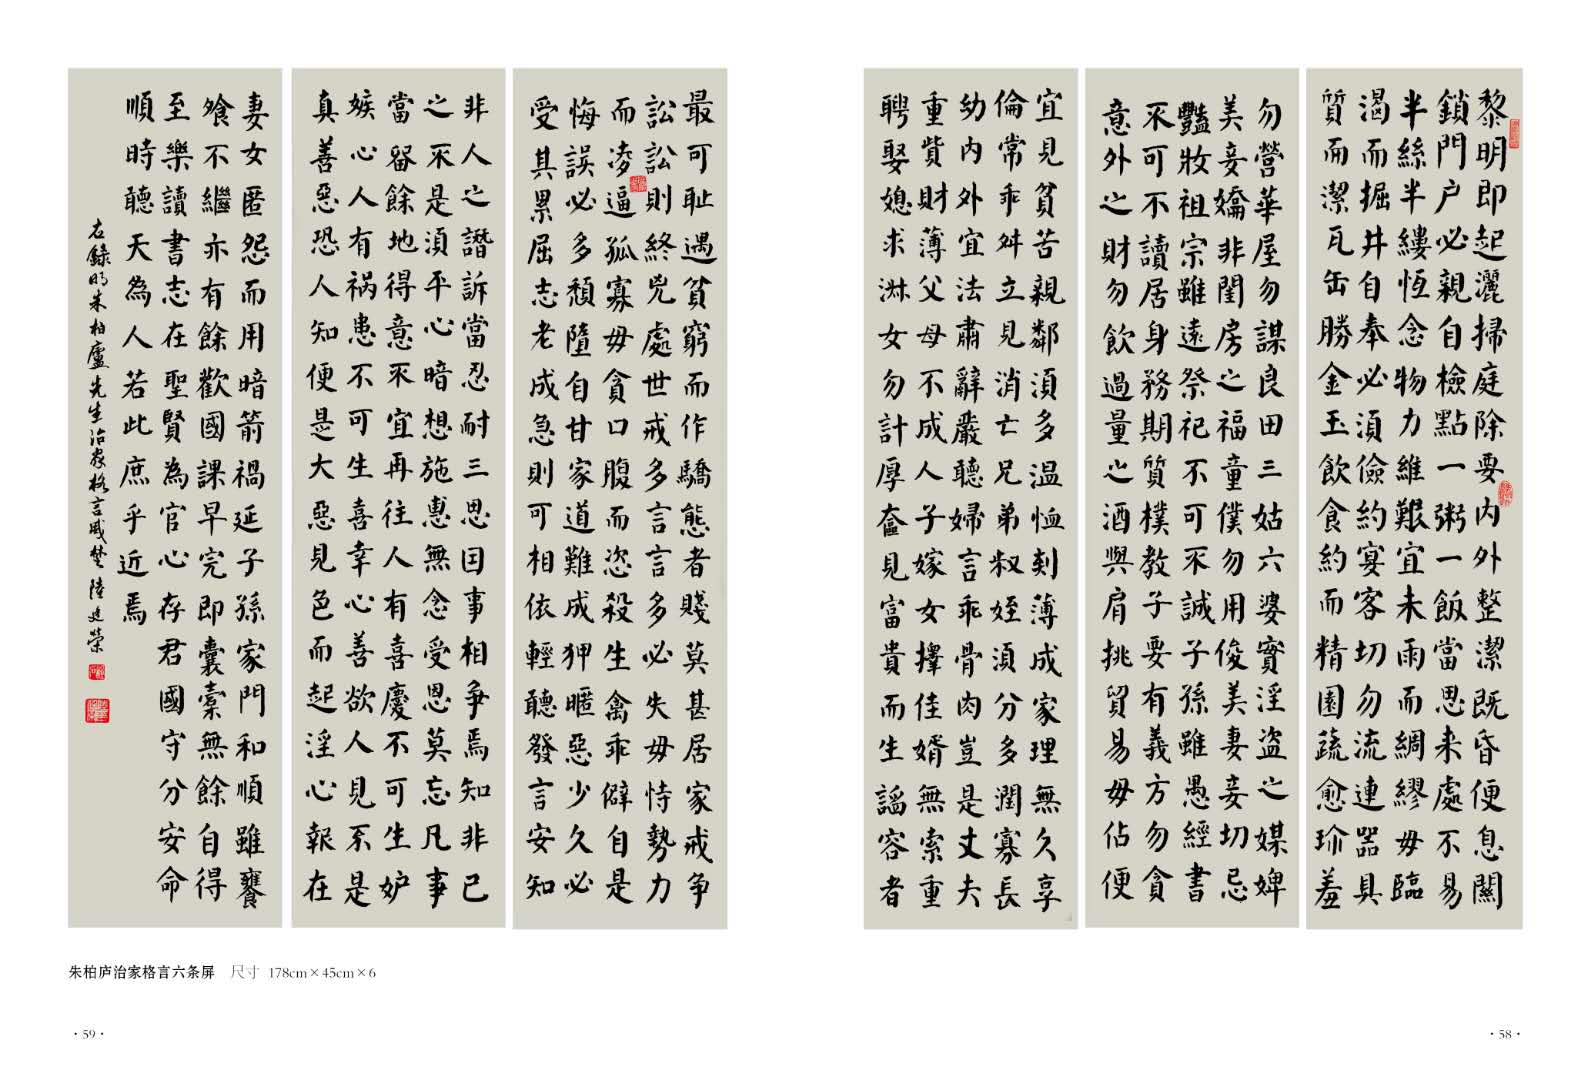 黎明即起灑掃庭除要内外整潔既昏便息關
鎖門户必親自檢點一粥一飯當思来處不易
半絲半縷恆念物力維艱宜未雨而綢繆毋臨
渴而掘井自奉必須儉約宴客切勿流連器具
質而潔瓦缶勝金玉飲食約而精園蔬愈珍羞
勿營華屋勿謀良田三姑六婆實淫盗之媒婢
美妾嬌非閨房之福童僕勿用俊美妻妾切忌
豔妝祖宗雖遠祭祀不可不誠子孫雖愚經書
不可不讀居身務期質樸教子要有義方勿貪
意外之財勿飲過量之酒與肩挑貿易毋佔便
宜見貧苦親鄰須多温恤刻薄成家理無久享
倫常乖舛立見消亡兄弟叔姪須分多潤寡長
幼内外宜法肅辭嚴聽婦言乖骨肉豈是丈夫
重貲財薄父母不成人子嫁女擇佳婿無索重
聘娶媳求淑女勿計厚奩見富貴而生謟容者
最可耻遇貧窮而作驕態者賤莫甚居家戒争
訟訟則終兇處世戒多言言多必失毋恃勢力
而凌逼孤寡毋貪口腹而恣殺生禽乖僻自是
悔誤必多頹隳自甘家道難成狎暱惡少久必
受其累屈志老成急則可相依輕聽發言安知
非人之譖訴當忍耐三思因事相争焉知非己
之不是須平心暗想施惠無念受恩莫忘凡事
當留餘地得意不宜再往人有喜慶不可生妒
嫉心人有禍患不可生喜幸心善欲人見不是
真善惡恐人知便是大惡見色而起淫心報在
妻女匿怨而用暗箭禍延子孫家門和順雖饔
飧不繼亦有餘歡國課早完即囊橐無餘自得
至樂讀書志在聖賢為官心存君國守分安命
順時聽天為人若此庶乎近焉
右錄明朱柏廬先生治家格言戚墅陸建榮
朱柏庐治家格言六条屏 尺寸 178cm×45cm×6
·59·
·58·